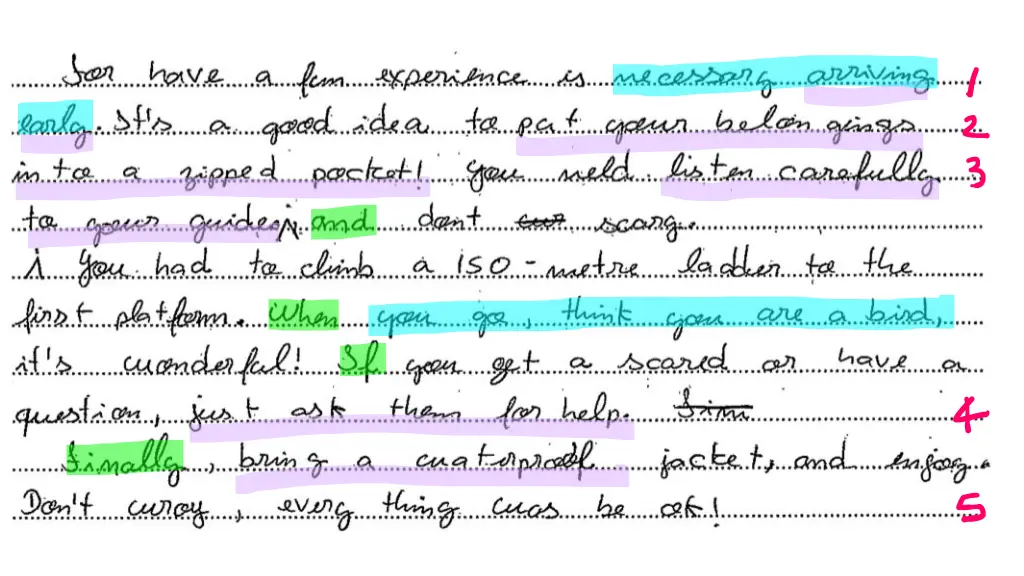 For have a fun experience is necessary arriving 1
early. It's a good idea to put your belongings 2
in to a zipped pocket! You neld listen carefully 3
to your guides, and dont scary.
You had to climb a 150-metre ladder to the
first platform. When you go, think you are a bird,
it's wonderful! If you get a scared or have a
question, just ask them for help. 4
Finally, bring a waterproof jacket, and enjoy.
Don't woray, every thing was be ok! 5